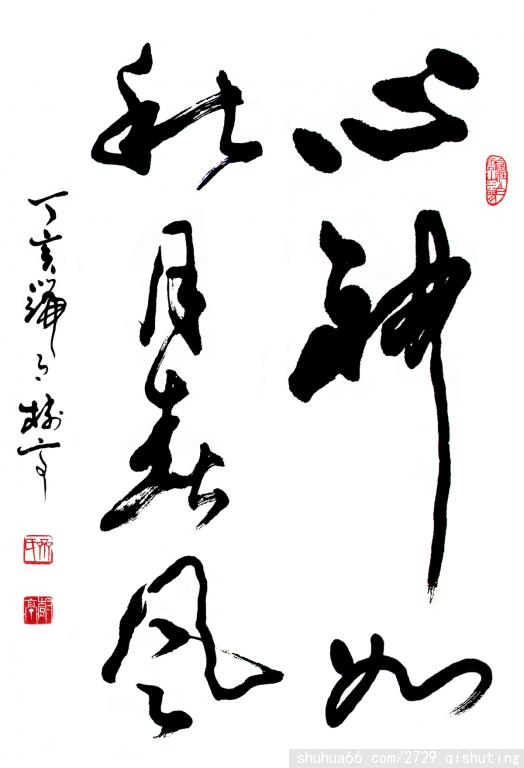 心神如
秋月春风
丁亥端月树亭
shuhua66.com/2729 qishuting